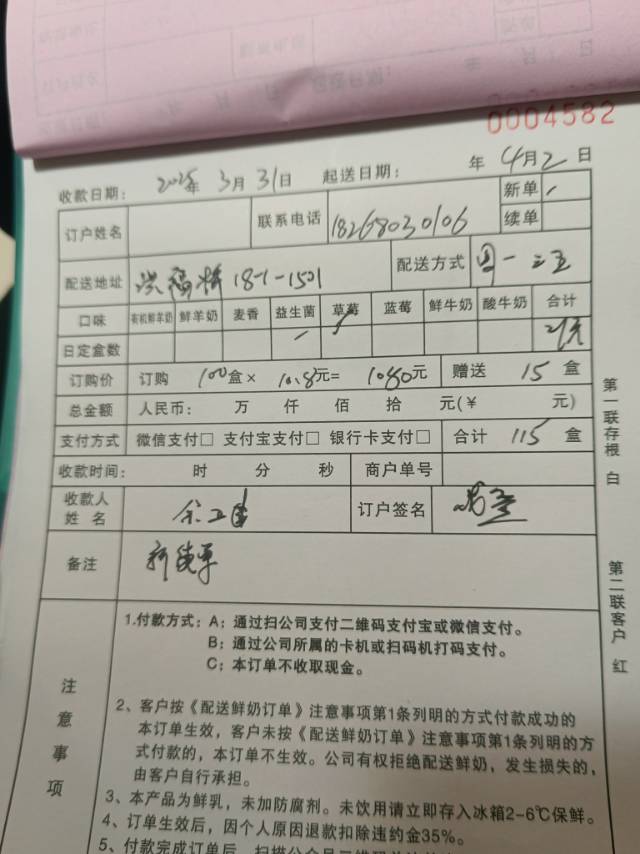 0004582
收款日期: 2025年 3月 31日 起送日期: 年 4月 2日
订户姓名 联系电话 18268030106 新单
续单
配送地址 洪福村 18-1-1501 配送方式 周一三五
口味 有机鲜羊奶 鲜羊奶 麦香 益生菌 草莓 蓝莓 鲜牛奶 酸牛奶 合计
日定盒数
订购价 订购 100盒× 10.8元= 1080元 赠送 15 盒
总金额 人民币: 万 仟 佰 拾 元(¥ 元)
支付方式 微信支付□ 支付宝支付□ 银行卡支付□ 合计 115 盒
收款时间: 时 分 秒 商户单号
收款人
姓 名 订户签名
备注 新续单
第一联存根 白
第二联客户 红
注意事项
1.付款方式: A: 通过扫公司支付二维码支付宝或微信支付。
B: 通过公司所属的卡机或扫码机打码支付。
C: 本订单不收取现金。
2、客户按《配送鲜奶订单》注意事项第1条列明的方式付款成功的
本订单生效，客户未按《配送鲜奶订单》注意事项第1条列明的方
式付款的，本订单不生效。公司有权拒绝配送鲜奶，发生损失的，
由客户自行承担。
3、本产品为鲜乳，未加防腐剂。未饮用请立即存入冰箱2-6℃保鲜。
4、订单生效后，因个人原因退款扣除违约金35%。